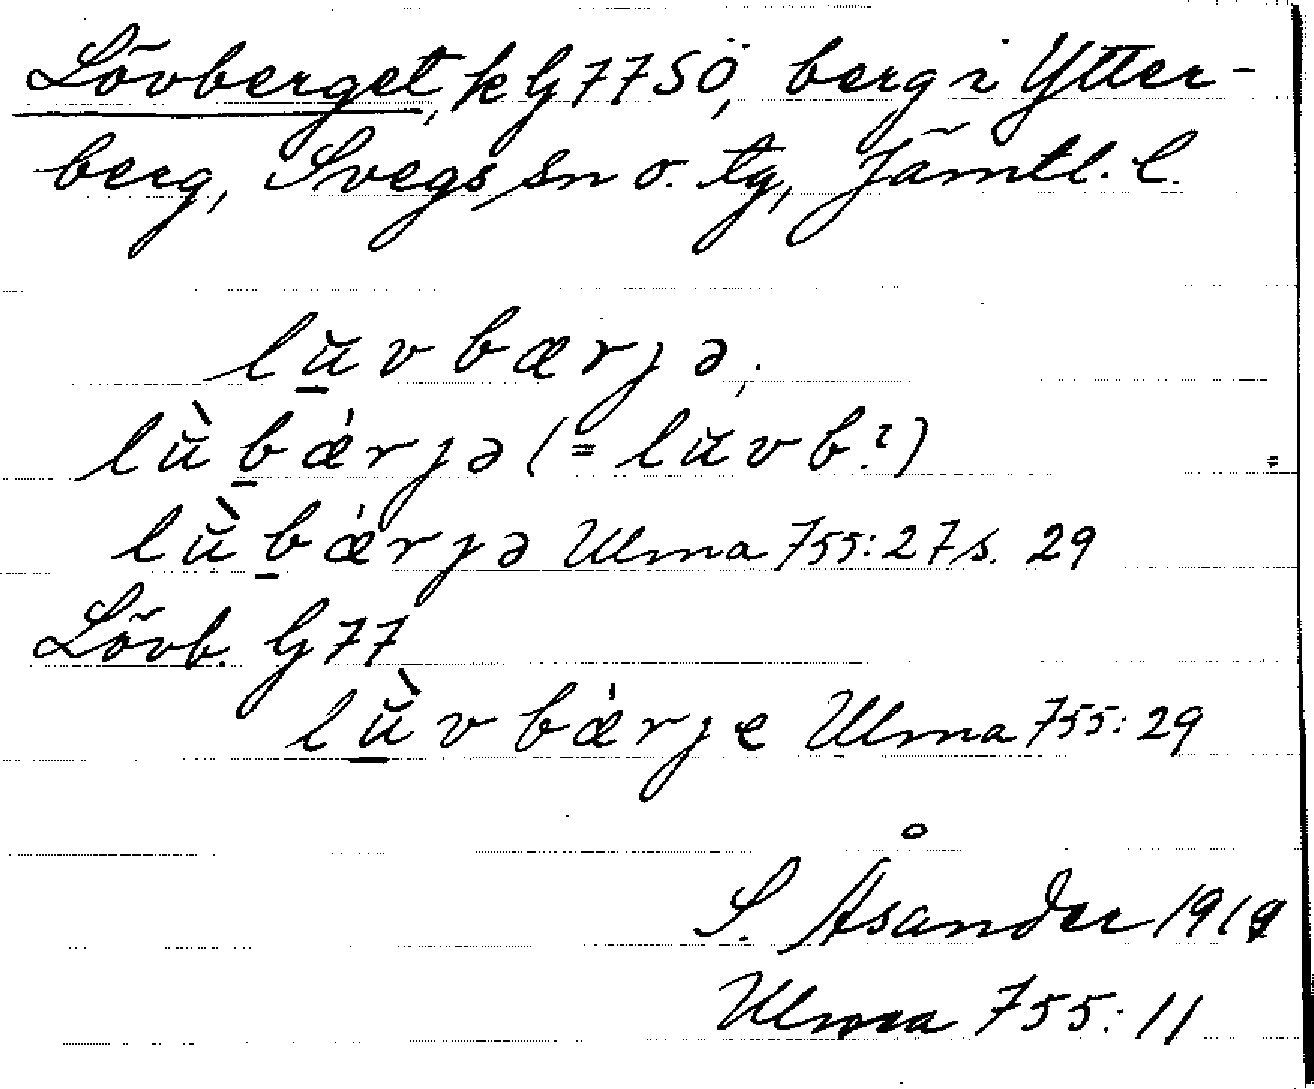 Lövberget, k G77SÖ, berg i Ytter-
berg, Svegs sn o. tg, Jämtl. l.
lü̲vbærjə,
lǜb̲ǽrjə (= lüvb.?)
lǜb̲ǽrjə Ulma 755:27 s. 29
Lövb. G77
lǜ̲vbǽrje Ulma 755:29
S. Åsander 1919
Ulma 755:11